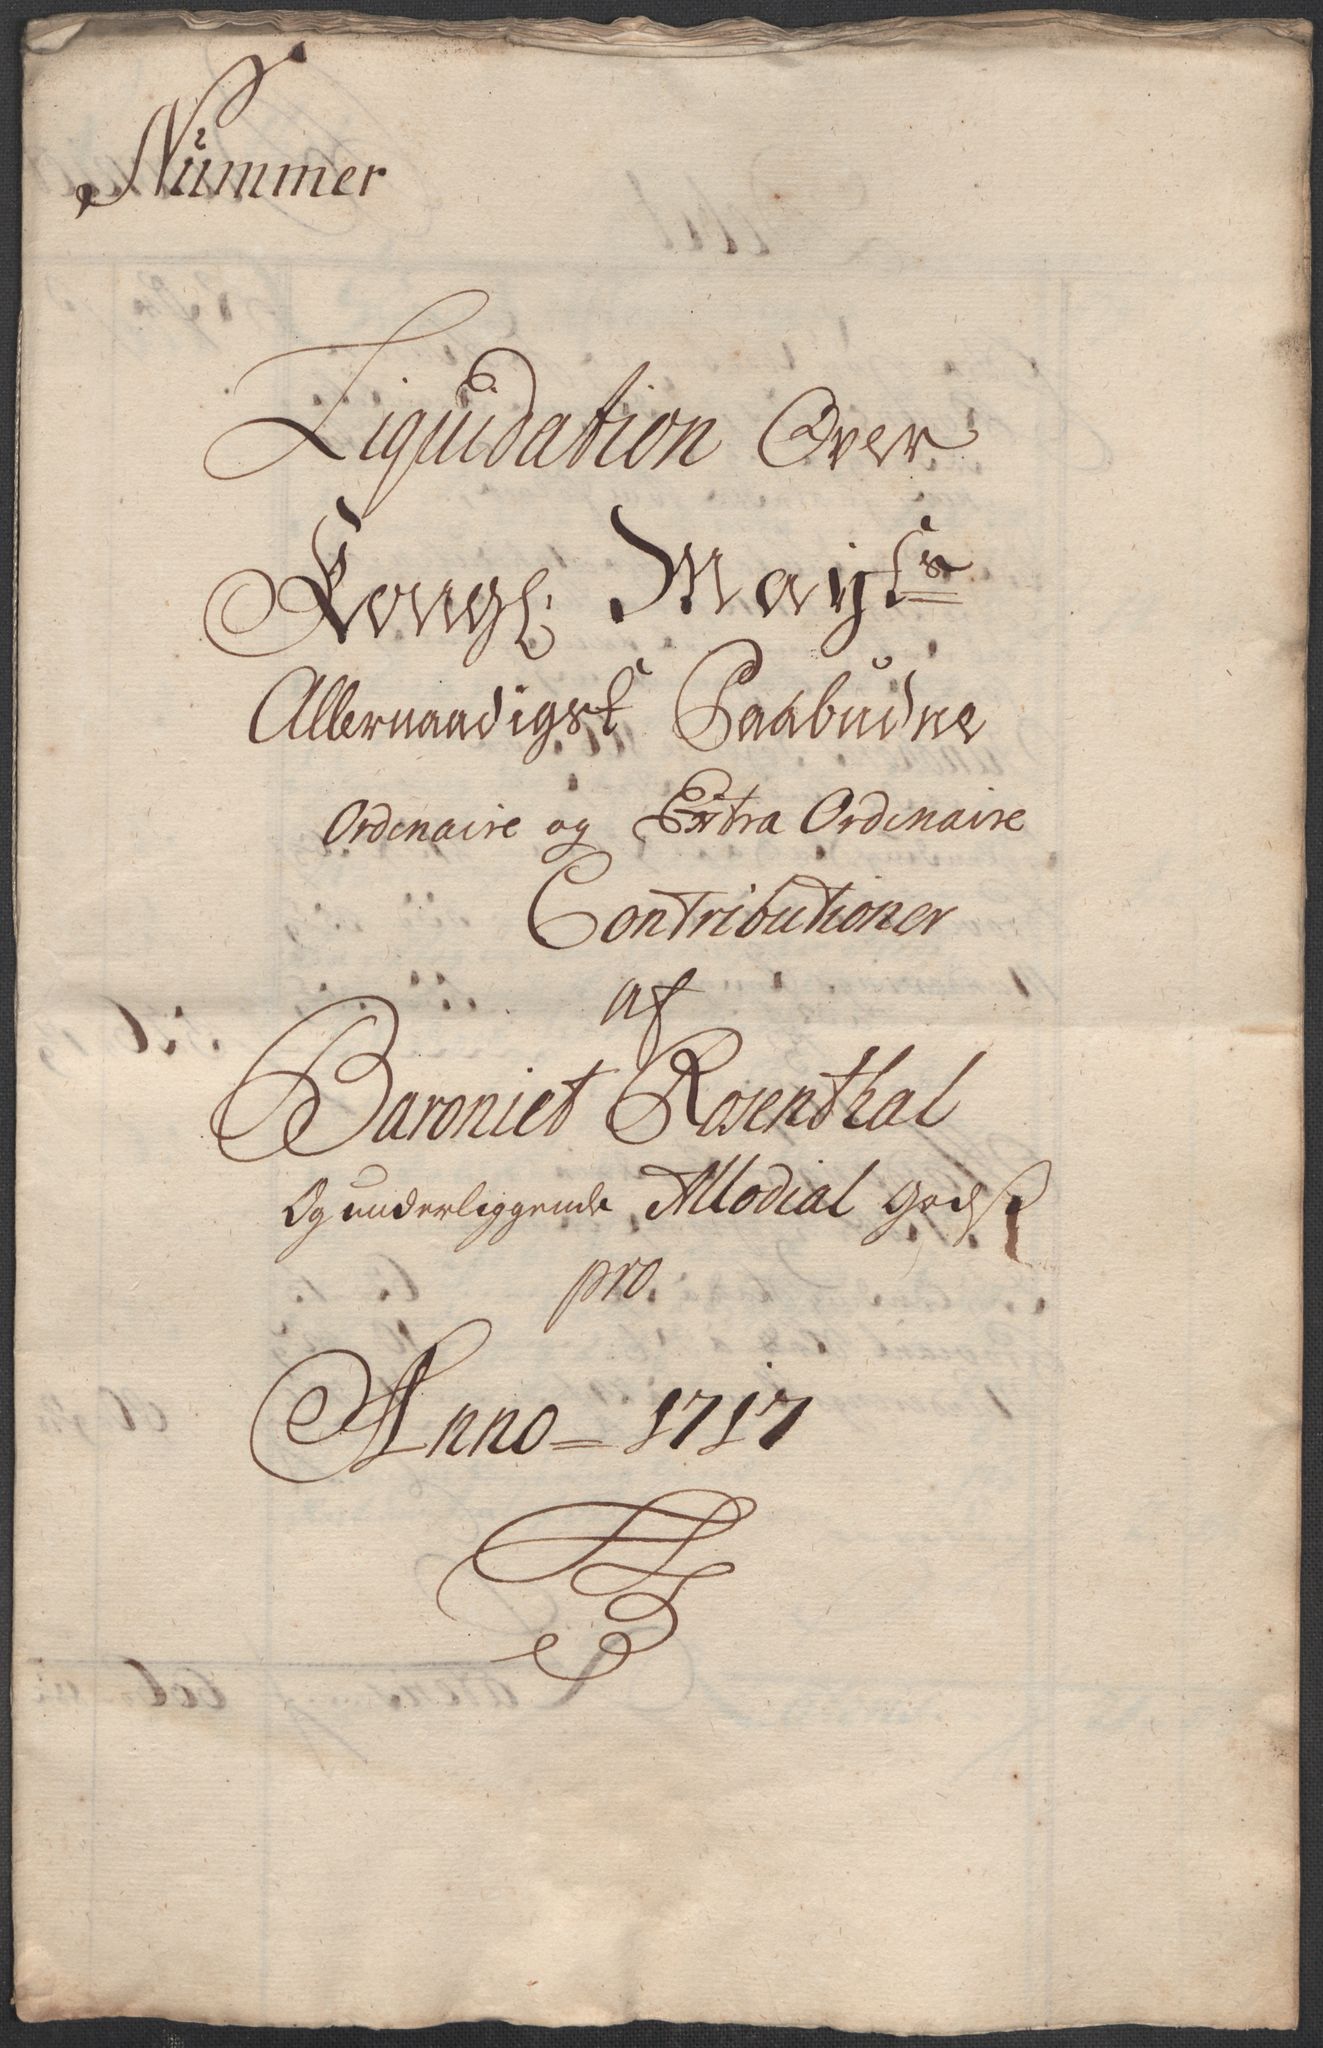 Nummer
Liquidation Over
Kongl. Mayts
Allernaadigst Paabudne
Ordinaire og Extra Ordinaire
Contributioner
af
Baroniet Rosenthal
Og underliggende Allodial godß
pro
Anno = 1717